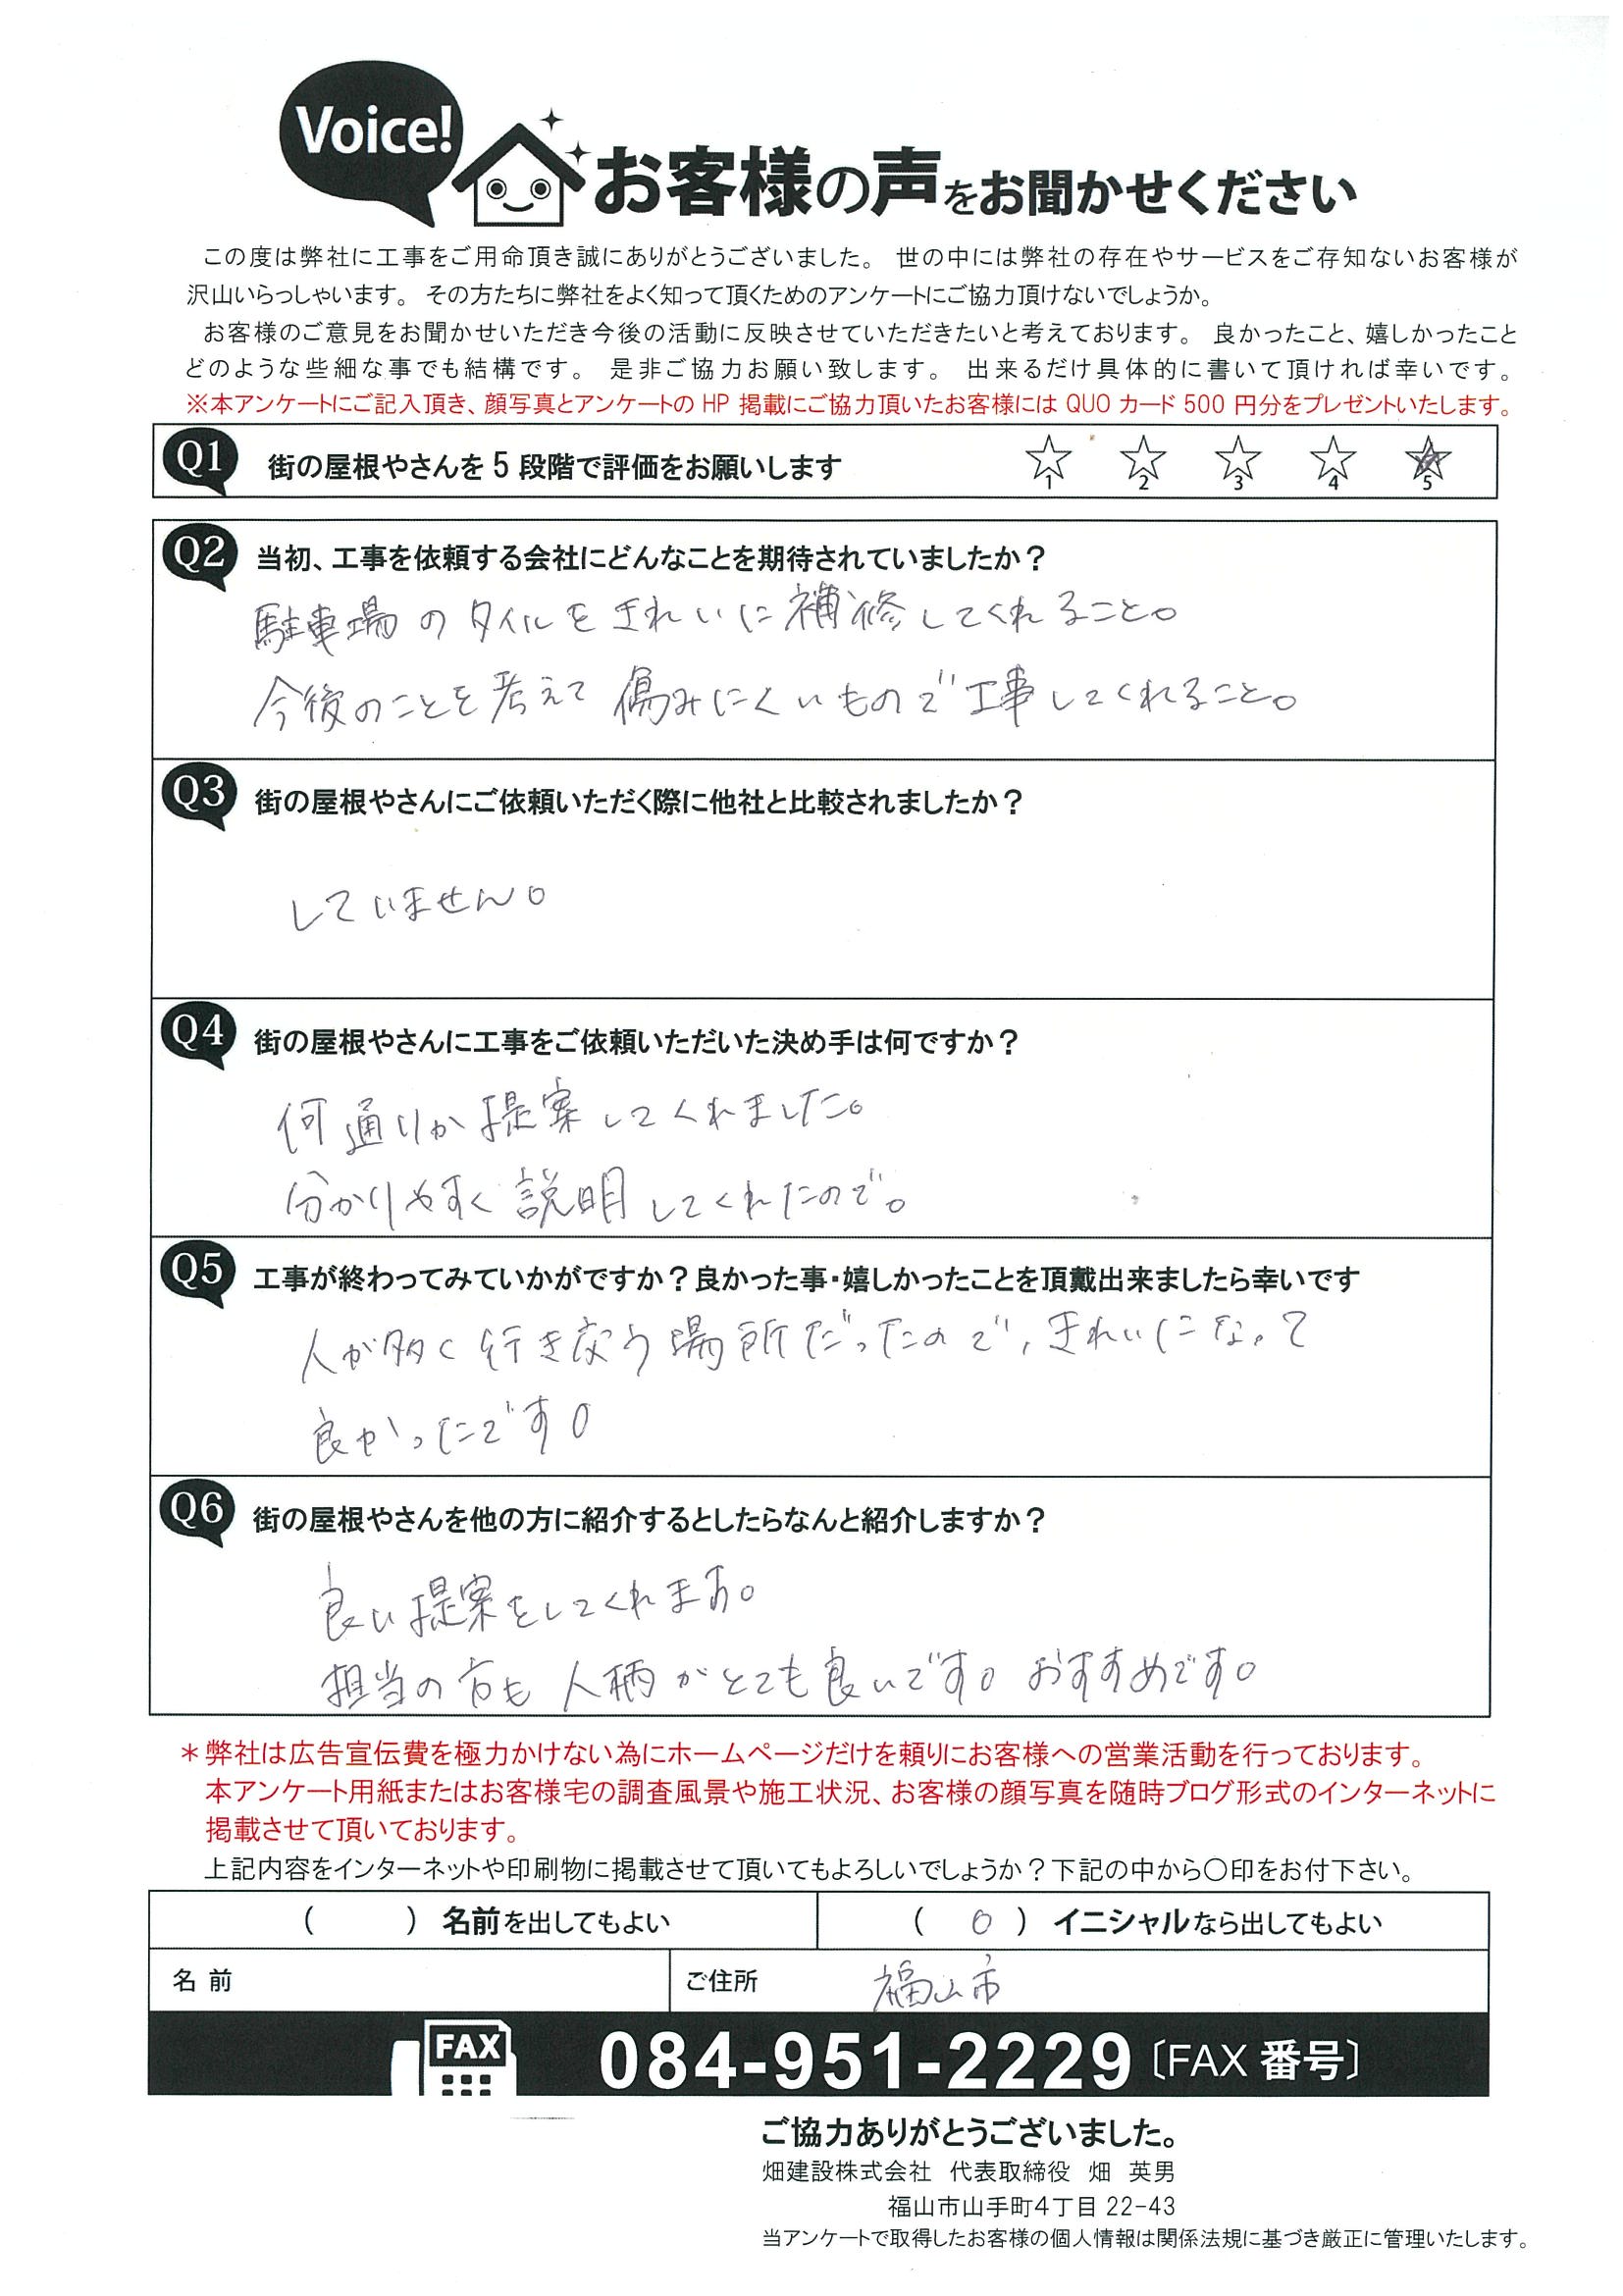 Voice!
お客様の声をお聞かせください
この度は弊社に工事をご用命頂き誠にありがとうございました。 世の中には弊社の存在やサービスをご存知ないお客様が
沢山いらっしゃいます。 その方たちに弊社をよく知って頂くためのアンケートにご協力頂けないでしょうか。
お客様のご意見をお聞かせいただき今後の活動に反映させていただきたいと考えております。 良かったこと、嬉しかったこと
どのような些細な事でも結構です。 是非ご協力お願い致します。 出来るだけ具体的に書いて頂ければ幸いです。
※本アンケートにご記入頂き、顔写真とアンケートの HP 掲載にご協力頂いたお客様には QUO カード 500 円分をプレゼントいたします。
Q1 街の屋根やさんを 5 段階で評価をお願いします ☆1 ☆2 ☆3 ☆4 ★5
Q2 当初、工事を依頼する会社にどんなことを期待されていましたか？
駐車場のタイルをきれいに補修してくれること。
今後のことを考えて傷みにくいもので工事してくれること。
Q3 街の屋根やさんにご依頼いただく際に他社と比較されましたか？
していません。
Q4 街の屋根やさんに工事をご依頼いただいた決め手は何ですか？
何通りか提案してくれました。
分かりやすく説明してくれたので。
Q5 工事が終わってみていかがですか？良かった事・嬉しかったことを頂戴出来ましたら幸いです
人が多く行き交う場所だったので、きれいになって
良かったです。
Q6 街の屋根やさんを他の方に紹介するとしたらなんと紹介しますか？
良い提案をしてくれます。
担当の方も人柄がとても良いです。おすすめです。
＊弊社は広告宣伝費を極力かけない為にホームページだけを頼りにお客様への営業活動を行っております。
本アンケート用紙またはお客様宅の調査風景や施工状況、お客様の顔写真を随時ブログ形式のインターネットに
掲載させて頂いております。
上記内容をインターネットや印刷物に掲載させて頂いてもよろしいでしょうか？下記の中から〇印をお付下さい。
（　　）名前を出してもよい （ 〇 ）イニシャルなら出してもよい
名 前 ご住所 福山市
FAX 084-951-2229〔FAX 番号〕
ご協力ありがとうございました。
畑建設株式会社 代表取締役 畑 英男
福山市山手町4丁目 22-43
当アンケートで取得したお客様の個人情報は関係法規に基づき厳正に管理いたします。